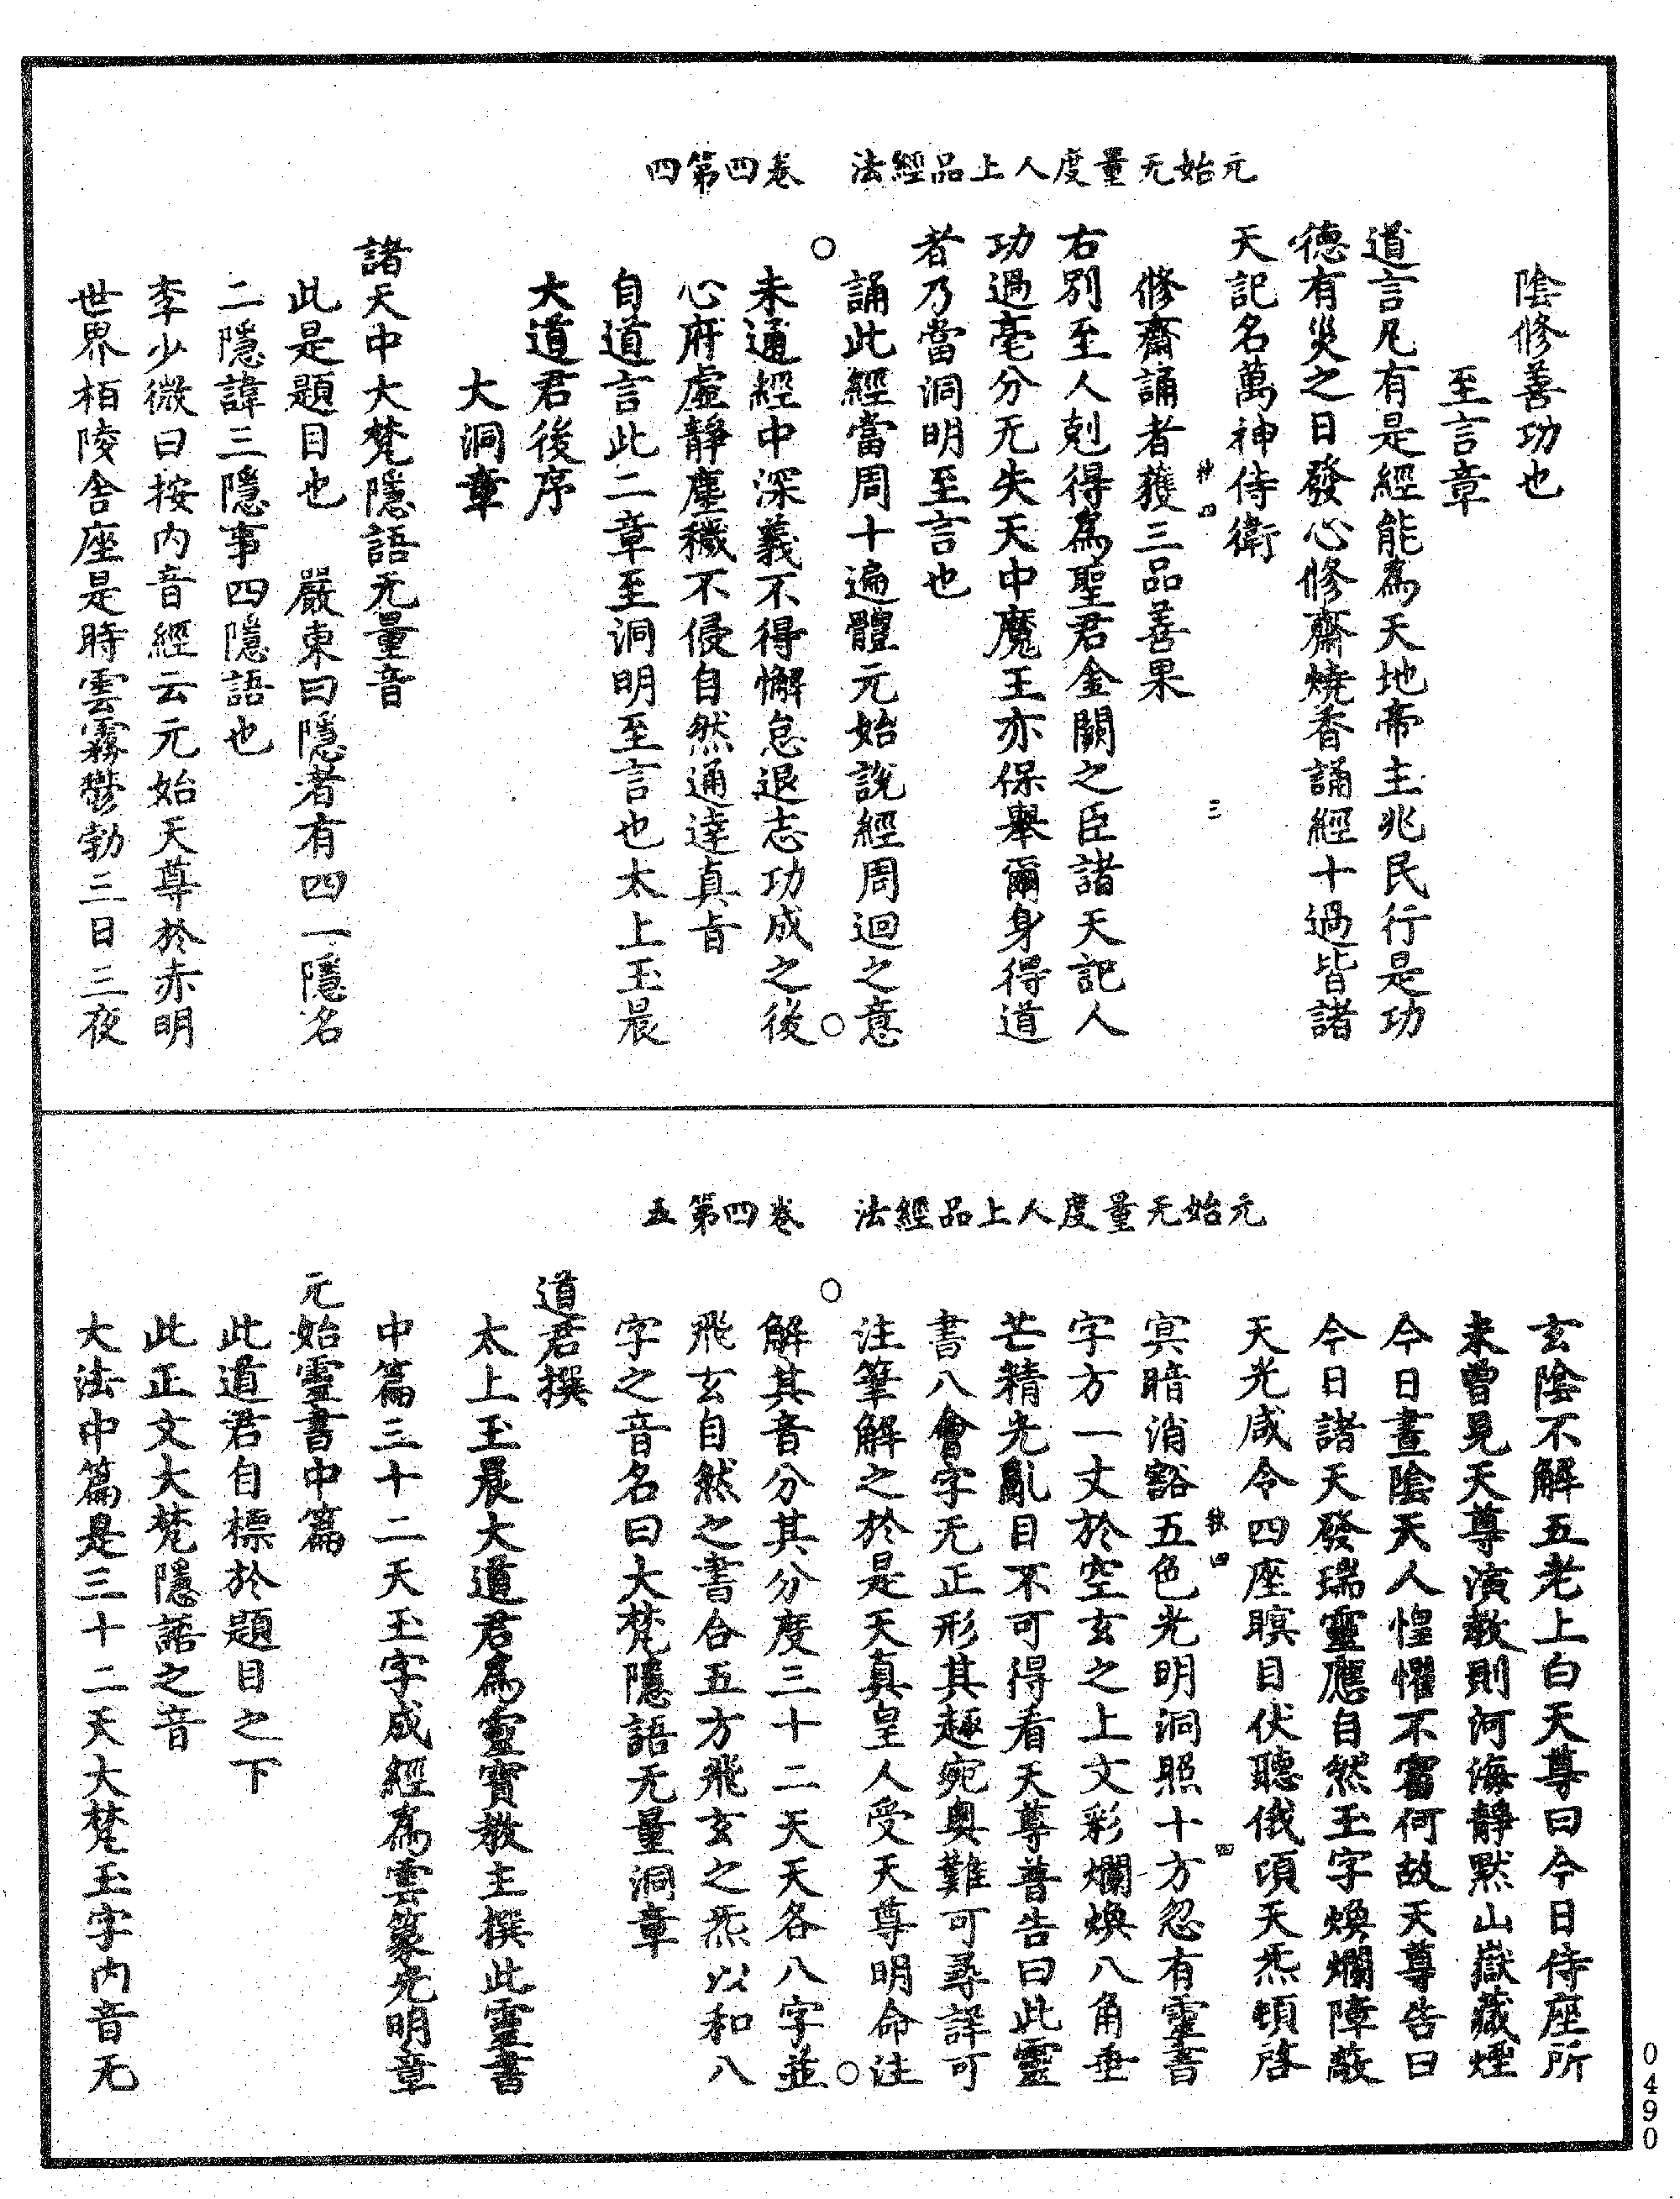 元始无量度人上品經法　卷四第四
陰修善功也
至言章
道言凡有是經能爲天地帝主兆民行是功
德有災之日發心修齋燒香誦經十過皆諸
天記名萬神侍衛
修齋誦者獲三品善果
右別至人剋得爲聖君金闕之臣諸天記人
功過毫分无失天中魔王亦保舉爾身得道
者乃當洞明至言也
誦此經當周十遍體元始說經周迴之意
未通經中深義不得懈怠退志功成之後
心府虛靜塵穢不侵自然通達真旨
自道言此二章至洞明至言也太上玉晨
大道君後序
大洞章
諸天中大梵隱語无量音
此是題目也　嚴東曰隱者有四一隱名
二隱諱三隱事四隱語也
李少微曰按內音經云元始天尊於赤明
世界栢陵舍座是時雲霧鬱勃三日三夜
元始无量度人上品經法　卷四第五
玄陰不解五老上白天尊曰今日侍座所
未曾見天尊演教則河海靜默山嶽藏煙
今日晝陰天人惶懼不審何故天尊告曰
今日諸天發瑞靈應自然玉字煥爛障蔽
天光咸令四座瞑目伏聽俄頃天炁頓啓
冥暗消豁五色光明洞照十方忽有靈書
字方一丈於空玄之上文彩爛煥八角垂
芒精光亂目不可得看天尊普告曰此靈
書八會字无正形其趣宛奧難可尋詳可
注筆解之於是天真皇人受天尊明命注
解其音分其分度三十二天天各八字並
飛玄自然之書合五方飛玄之炁以和八
字之音名曰大梵隱語无量洞章
道君撰
太上玉晨大道君爲靈寶教主撰此靈書
中篇三十二天玉字成經爲雲篆光明章
元始靈書中篇
此道君自標於題目之下
此正文大梵隱語之音
大法中篇是三十二天大梵玉字內音无
0490